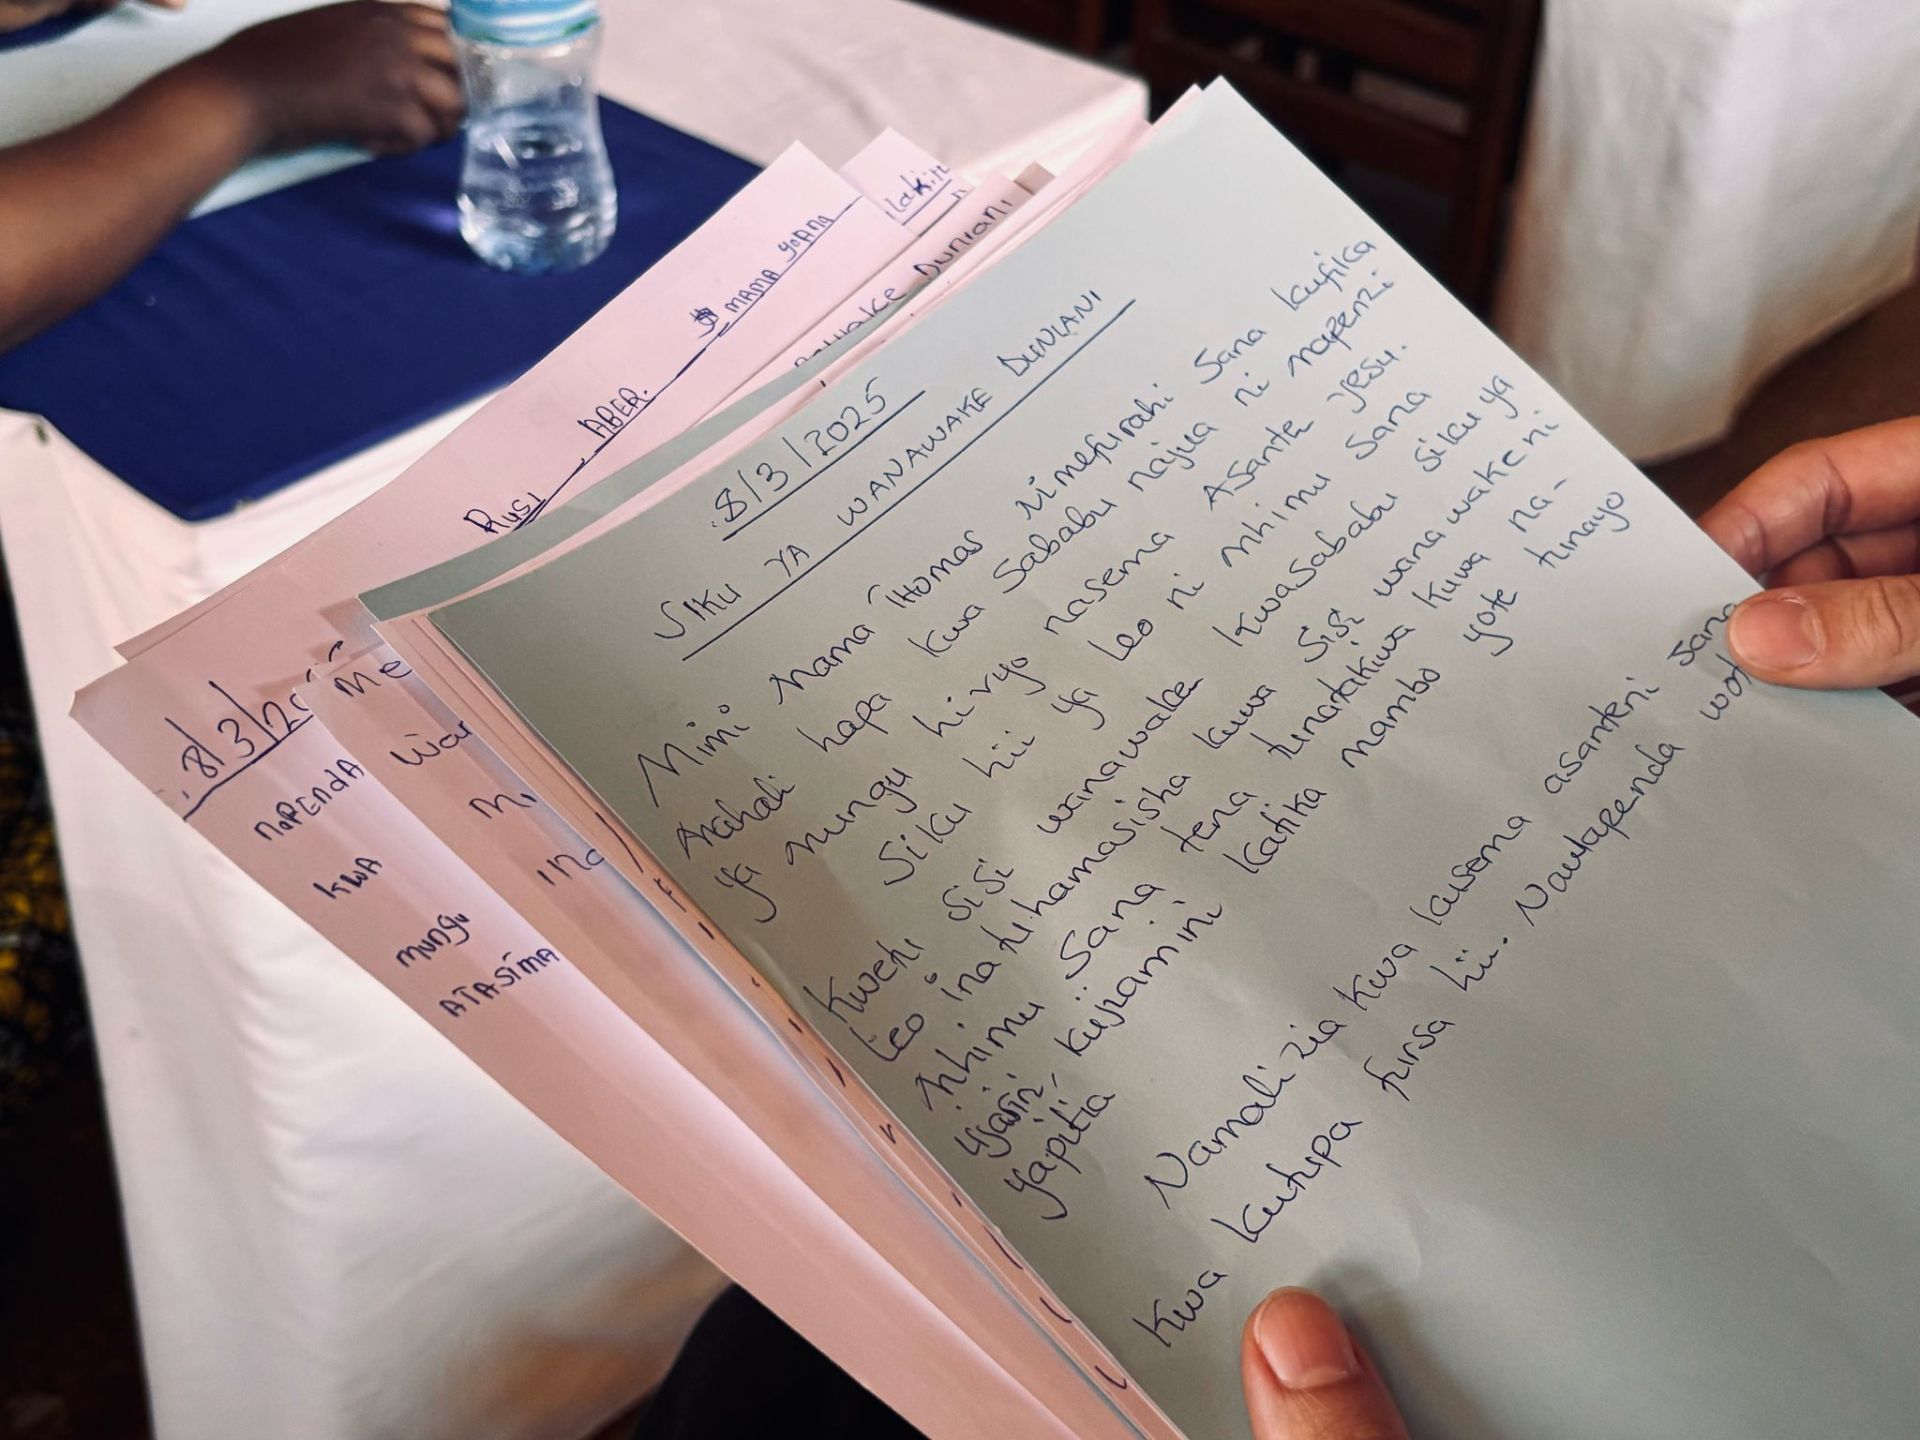 8/3/2025
SIKU YA WANAWAKE DUNIANI
Mimi Mama Thomas nimefurahi Sana kufika
Mahali hapa kwa Sababu najua ni mapenzi
ya mungu hivyo nasema Asante Yesu.
Siku hii ya leo ni Mhimu Sana
Kwetu sisi wanawake kwasababu siku ya
Leo inatuhamasisha kuwa sisi wanawake ni
Mhimu Sana tena tunatakiwa kuwa na-
kujiamini katika mambo yote tunayo
yapitia
Namalizia kwa kusema asanteni Sana
Kwa kutupa fursa hii. Nawapenda wot
8/3/20
NAPENDA
KWA
MUNGU
ATASIMA
Me
War
Mi
ina
Rusi ABER. MAMA YOANA
Duniani